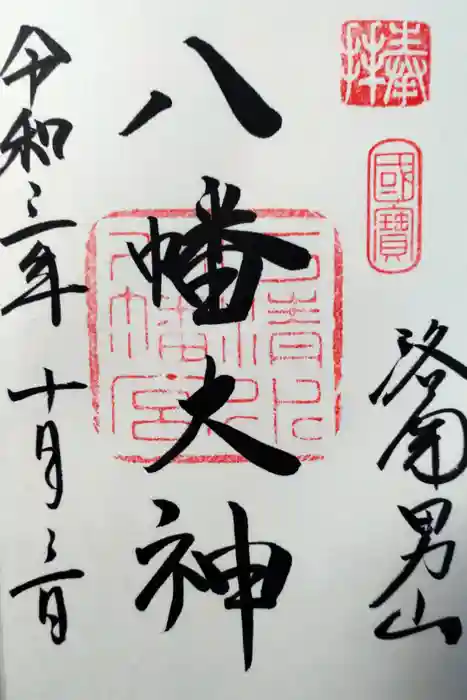 奉拝
國寶
洛南男山
八幡大神
石清水
八幡宮
令和三年十月三日